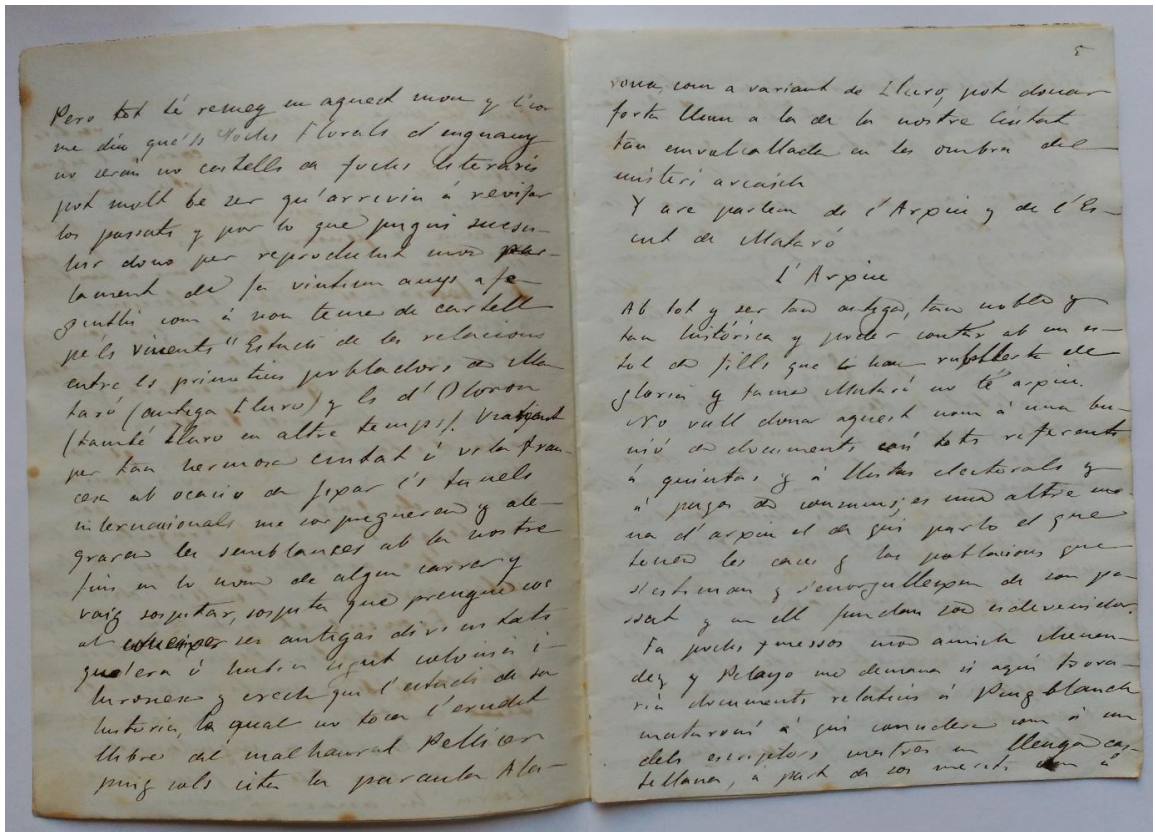 Pero tot té remey en aquest mon y com
me diu qué'ls Jochs Florals d'enguany
no serán no castells de fochs literaris
pot molt be ser qu'arrivin á revifar
los passats y por lo que pugui succeu-
hir dono per reproduhit mon par-
lament de fa vintiun anys afe-
gintlhi com á nou tema de cartell
pels vinents "Estudi de les relacions
entre ls primitius pobladors de Ma
taró (antiga Iluro) y ls d'Oloron
(també Iluro en altre temps). Viatjant
per tan hermosa ciutat ó vila fran-
cesa ab ocasió de fixar ls tunels
internacionals me sorprengueren y ale-
graren les semblances ab la nostre
fins en lo nom de algun carrer y
vaig sospitar, sospita que prengué cos
al coneixer ses antigas divinitats
que era ó havia sigut colonia i-
luronesa y crech que l'estudi de sa
historia, la qual no toca l'erudit
llibre del malhaurat Pellicer
puig sols cita la paraula Alo-
5
rona, com a variant de Iluro, pot donar
forta llum a la de la nostre Ciutat
tan embolcallada en les ombres del
misteri arcaich
Y are parlem de l'Arxiu y de l'Es-
cut de Mataró
L'Arxiu
Ab tot y ser tan antiga, tan noble y
tan històrica y poder contar ab un es-
tol de fills que li han rublerta de
gloria y fama Mataró no té arxiu.
No vull donar aquest nom á una bu-
nió de documents casi tots referents
á quintas y á llistas electorals y
á pagos de consums; es una altre me
na d'arxiu el de qui parlo el que
tenen les cases y las poblacions que
s'estiman y s'enorgulleixen de son pa-
ssat y en ell fundan son esdevenidor.
Fa pochs mesos mon amich Menen-
dez y Pelayo me demana si aquí trova-
ria documents relatius á Puigblanch
mataroní á qui considera com á un
dels escriptors mestres en llenga cas-
tellana, a part de sos merits com á